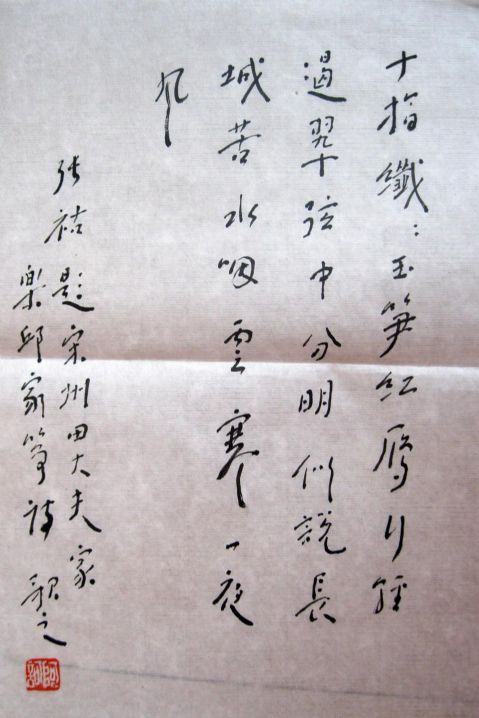 十指纖〻玉笋紅雁行輕
遏翠弦中分明似說長
城苦水咽雲寒一夜
風
張祜題宋州田大夫家
樂邱家箏詩之